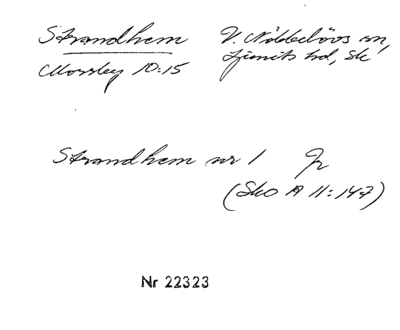 Strandhem V. Nöbbelövs sn,
Mossby 10:15 Ljunits hd, Sk
Strandhem nr 1 Jr
(Sko A II:147)
Nr 22323